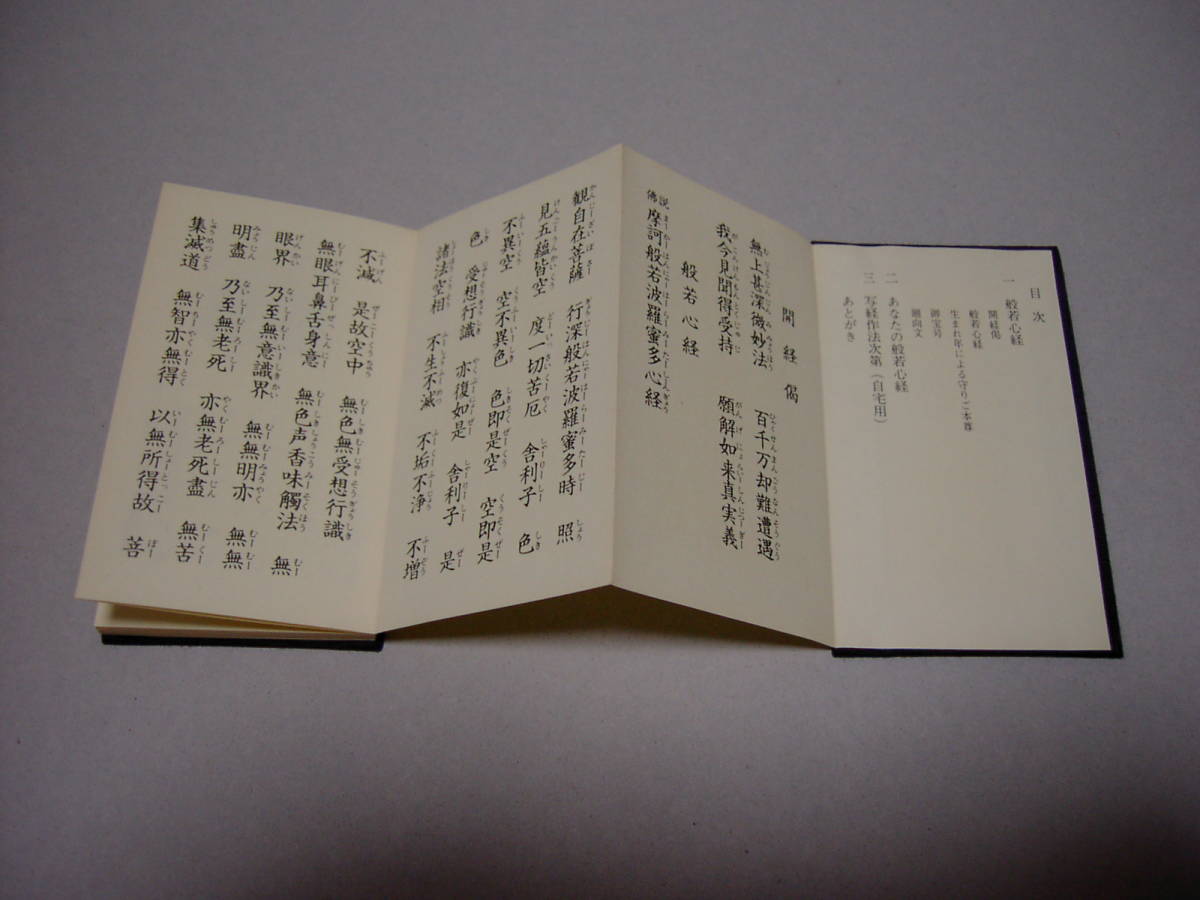 目次
一 般若心経
開経偈
般若心経
生まれ年による守りご本尊
御宝号
廻向文
二 あなたの般若心経
三 写経作法次第（自宅用）
あとがき
開経偈
無上甚深微妙法 百千万却難遭遇
我今見聞得受持 願解如来真実義
般若心経
佛説摩訶般若波羅蜜多心経
観自在菩薩 行深般若波羅蜜多時 照
見五蘊皆空 度一切苦厄 舎利子 色
不異空 空不異色 色即是空 空即是
色 受想行識 亦復如是 舎利子 是
諸法空相 不生不滅 不垢不浄 不増
不減 是故空中 無色無受想行識
無眼耳鼻舌身意 無色声香味觸法 無
眼界 乃至無意識界 無無明亦 無無
明盡 乃至無老死 亦無老死盡 無苦
集滅道 無智亦無得 以無所得故 菩